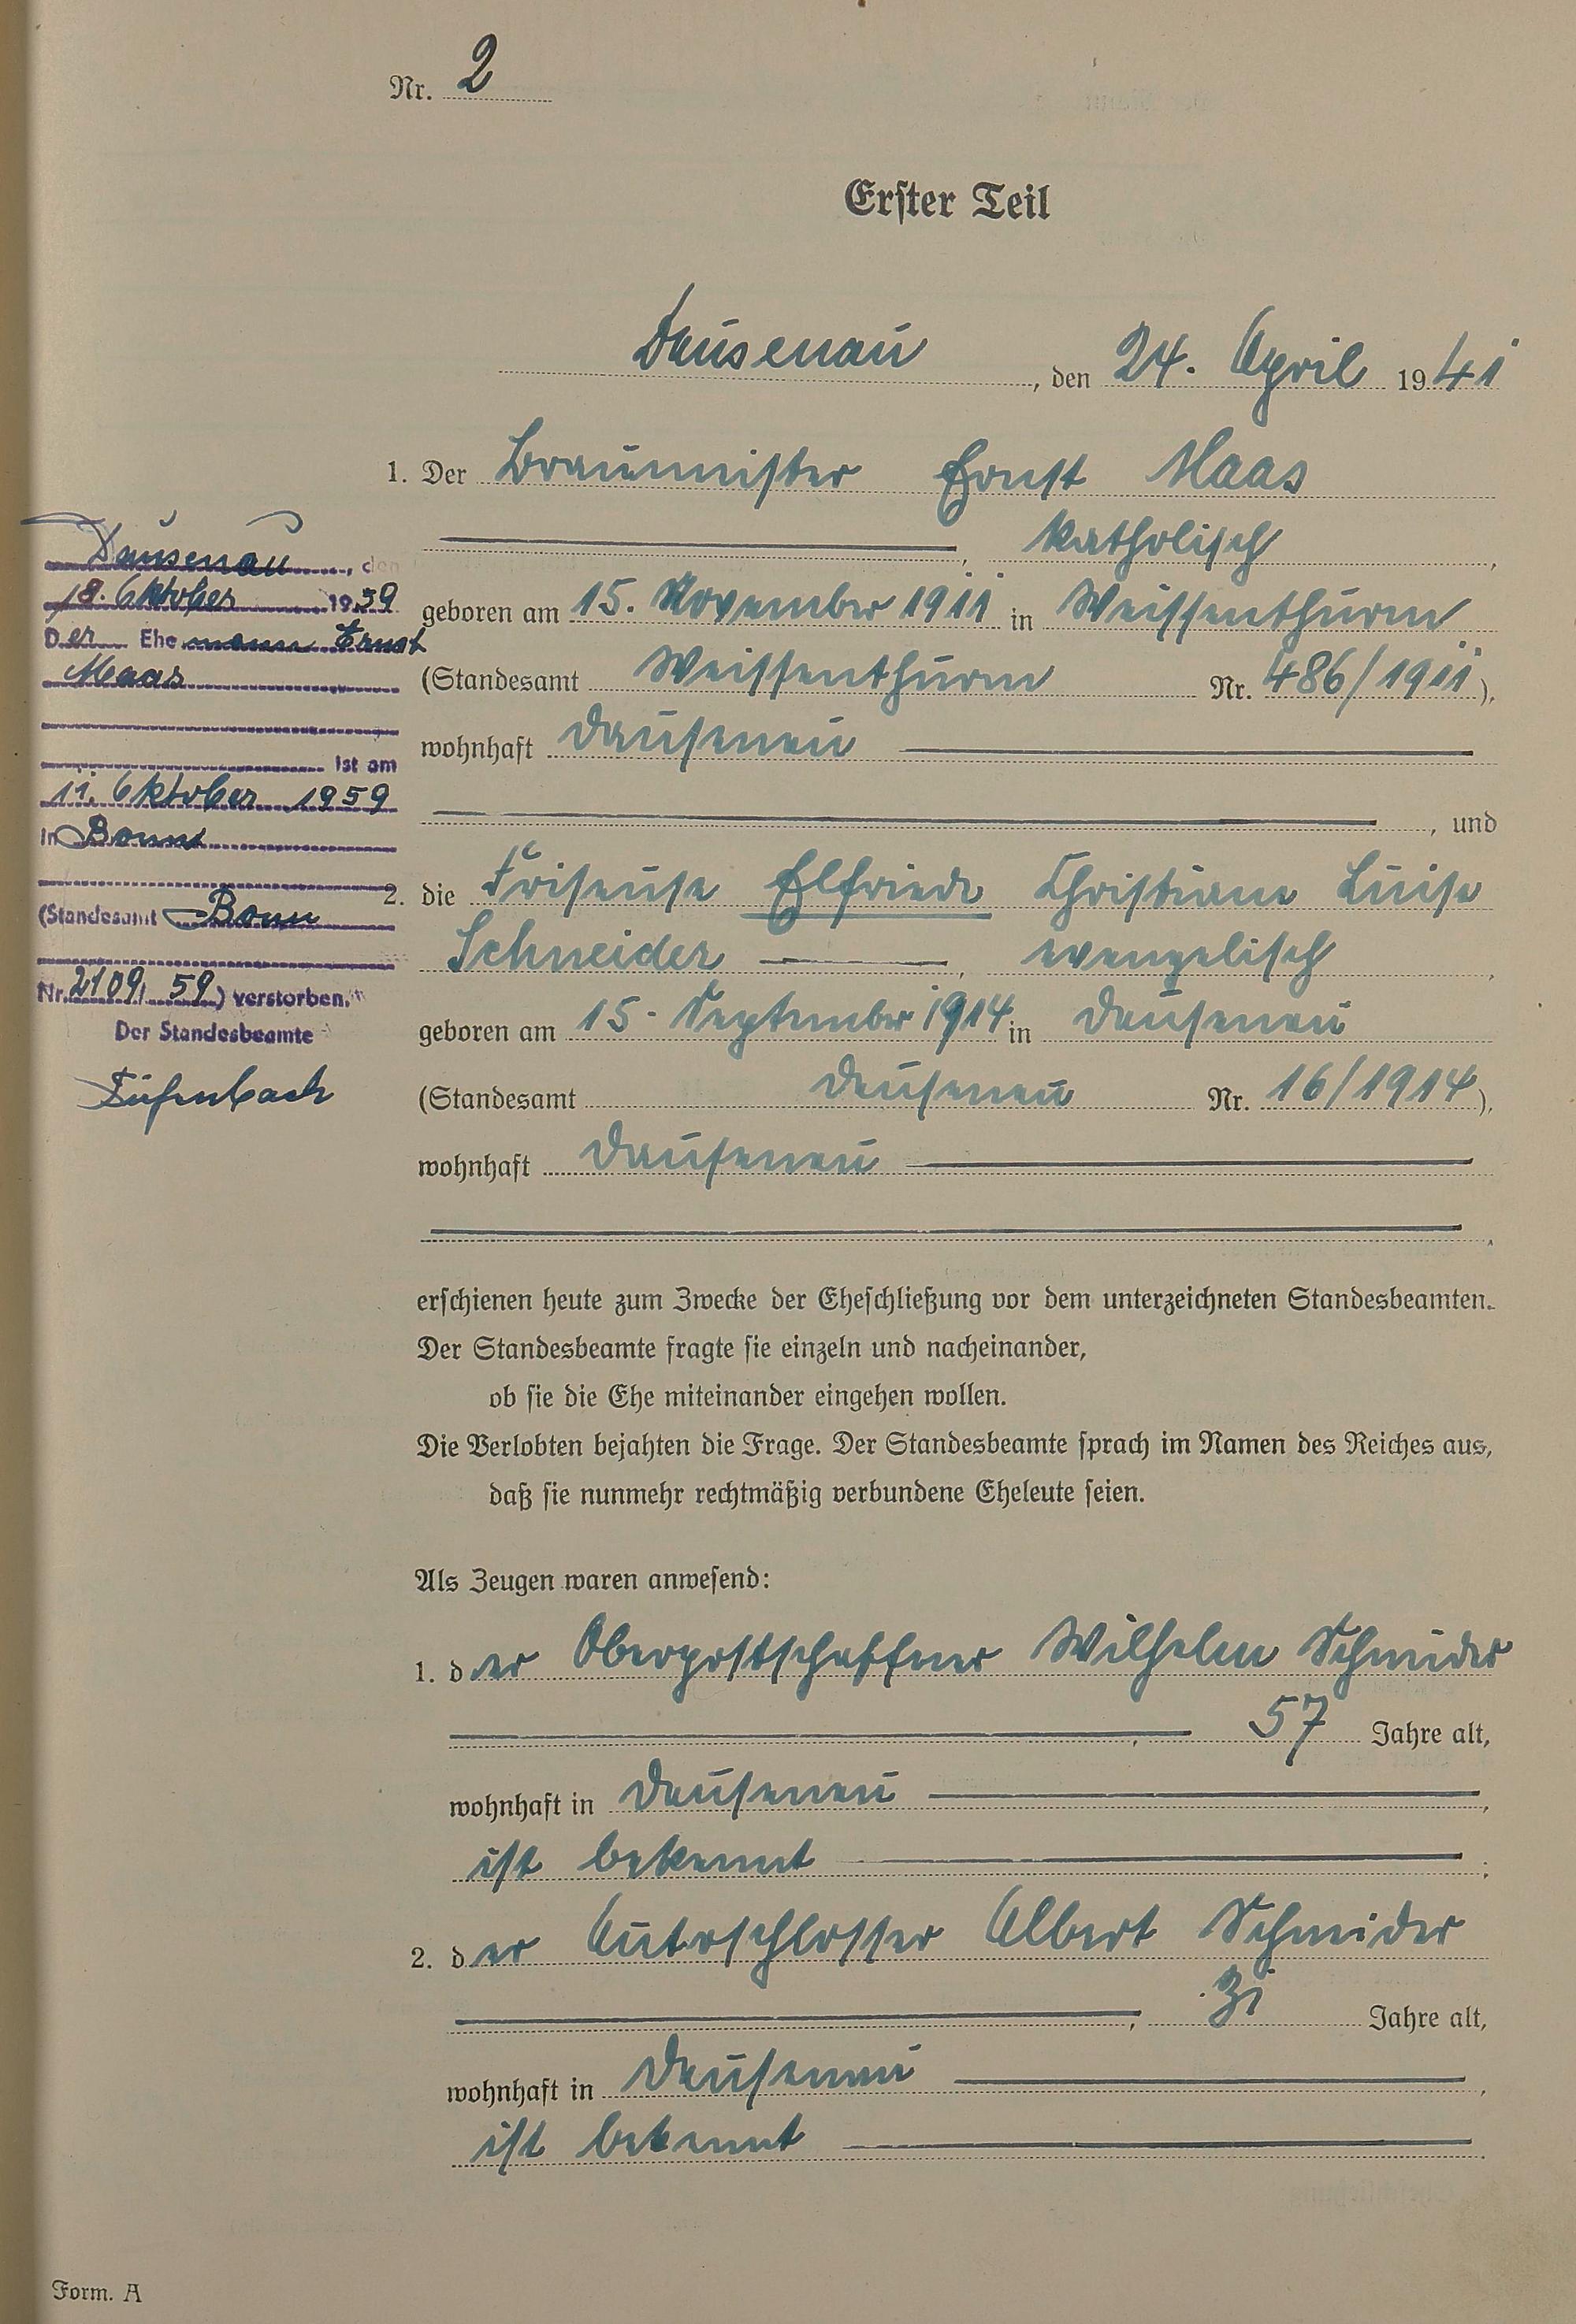 Nr. 2
Erster Teil
Dausenau, den 24. April 1941
1. Der Braumeister Ernst Maas
, katholisch,
geboren am 15. November 1911 in Weissenthurm
(Standesamt Weissenthurm Nr. 486/1911),
wohnhaft Dausenau
, und
2. die Friseuse Elfriede Christiane Luise
Schneider, evangelisch,
geboren am 15. September 1914 in Dausenau
(Standesamt Dausenau Nr. 16/1914),
wohnhaft Dausenau
erschienen heute zum Zwecke der Eheschließung vor dem unterzeichneten Standesbeamten.
Der Standesbeamte fragte sie einzeln und nacheinander,
ob sie die Ehe miteinander eingehen wollen.
Die Verlobten bejahten die Frage. Der Standesbeamte sprach im Namen des Reiches aus,
daß sie nunmehr rechtmäßig verbundene Eheleute seien.
Als Zeugen waren anwesend:
1. der Oberpostschaffner Wilhelm Schneider
, 57 Jahre alt,
wohnhaft in Dausenau,
ist bekannt;
2. der Autoschlosser Albert Schneider
, 31 Jahre alt,
wohnhaft in Dausenau,
ist bekannt.
Form. A
Dausenau, den
18. Oktober 1959
Der Ehemann Ernst
Maas
ist am
11. Oktober 1959
in Bonn
(Standesamt Bonn
Nr. 2109/59) verstorben.
Der Standesbeamte